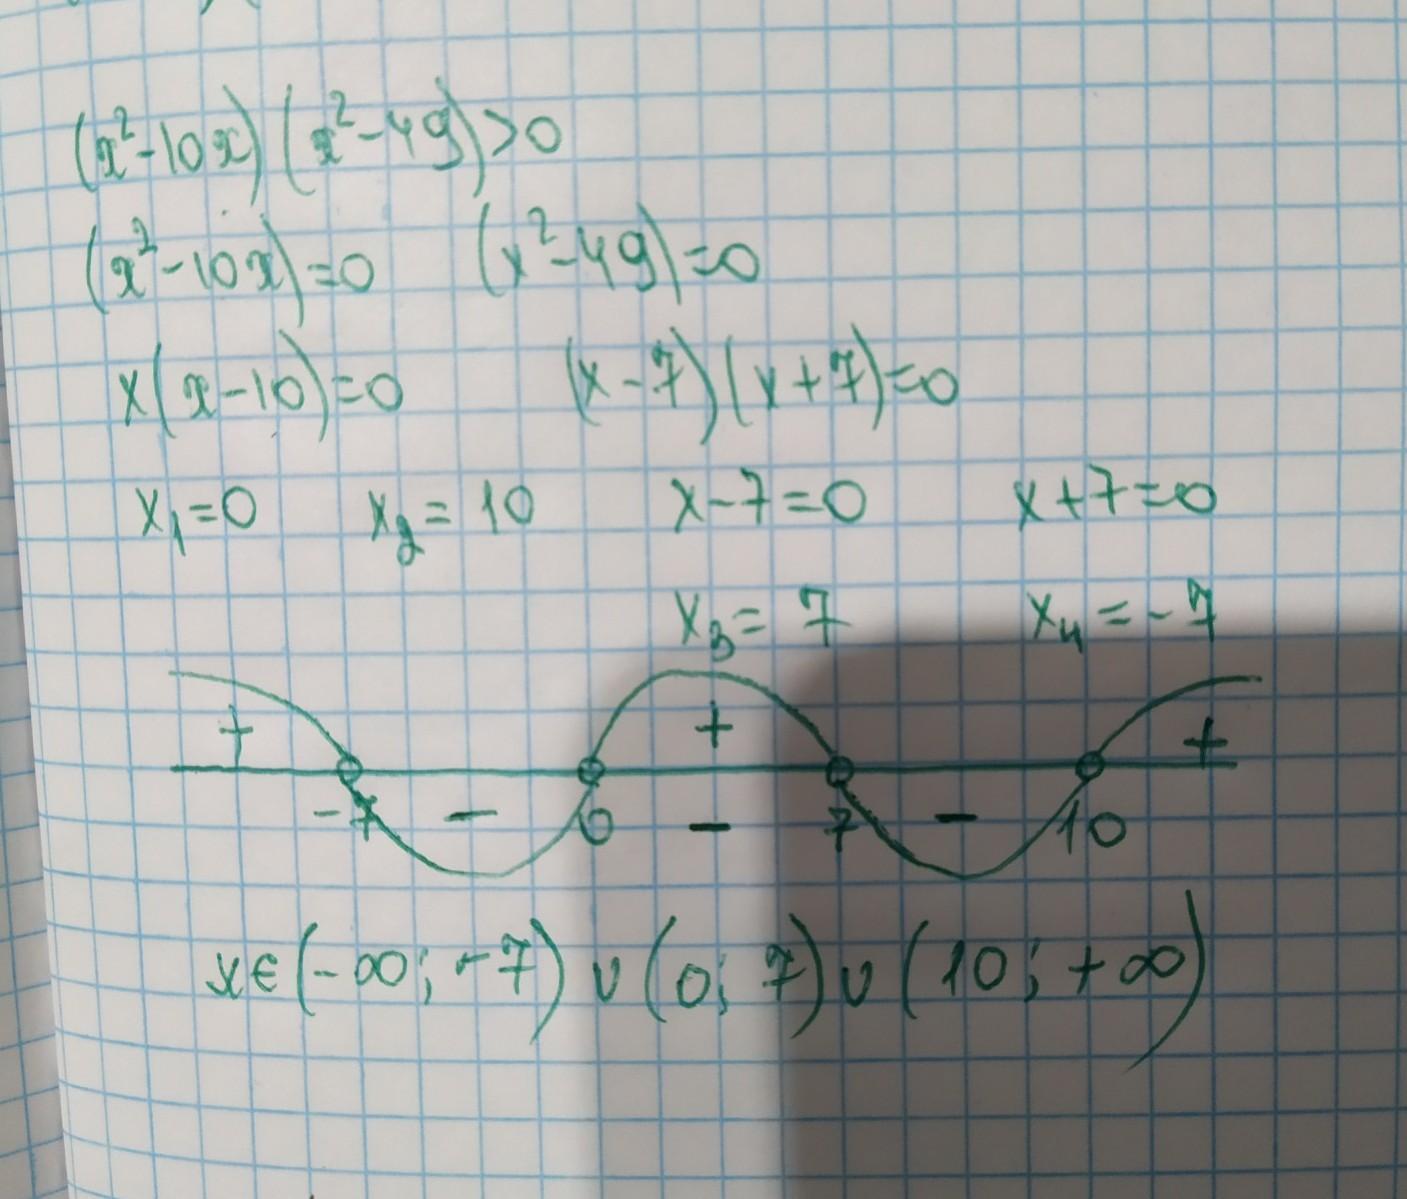 (x²-10x)(x²-49)>0
(x²-10x)=0 (x²-49)=0
x(x-10)=0 (x-7)(x+7)=0
x₁=0 x₂=10 x-7=0 x+7=0
x₃=7 x₄=-7
+ + +
-7 - 0 - 7 - 10
x∈(-∞;-7)∪(0;7)∪(10;+∞)